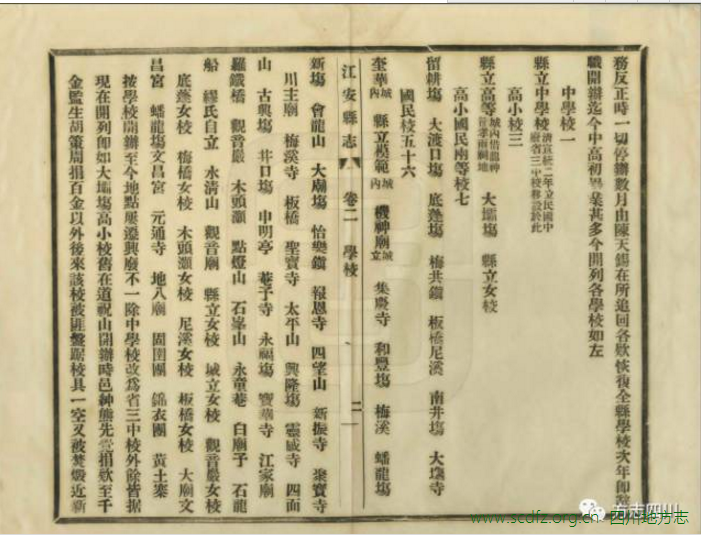 務反正時一切停辦數月由陳天錫在所追回各欵恢復全縣學校次年即
職開辦迄今中高初畢業甚多今開列各學校如左
中學校一
縣立中學校清宣統二年立民國中省三中校移設於此
高小校三
縣立高等城內借龍神祠地 大壩場 縣立女校
高小國民兩等校七
留耕場 大渡口場 底蓬場 梅共鎮 板橋尼溪 南井場 大壩寺
國民校五十六
奎華城內 縣立模範城內 機神廟城立 集慶寺 和豐場 梅溪 蟠龍場
江安縣志 卷二 學校 二
新場 會龍山 大廟場 怡樂鎮 報恩寺 四望山 新振寺 聚寶寺
川主廟 梅溪寺 板橋 聖寶寺 太平山 興隆場 靈寺 四面
山 古興場 井口場 申明亭 菴子寺 永福場 寶華寺 江家廟
羅鐵橋 觀音巖 木頭灝 點燈山 石峯山 永童菴 白廟子 石龍
船 繆氏自立 水清山 觀音廟 縣立女校 城立女校 觀音巖女校
底蓬女校 梅橋女校 木頭灝女校 尼溪女校 板橋女校 大廟文
昌宮 蟠龍場文昌宮 元通寺 地八廟 固圉團 錦衣團 黃土寨
按學校開辦至今地點屢遷興廢不一除中學校改爲省三中校外餘皆據
現在開列即如大壩場高小校舊在道祝山開辦時邑紳熊先捐欵至千
金監生胡策周捐百金以外後來該校被匪盤踞校具一空又被焚燬近新
方志四川
www.scdfz.org.cn 四川地方志